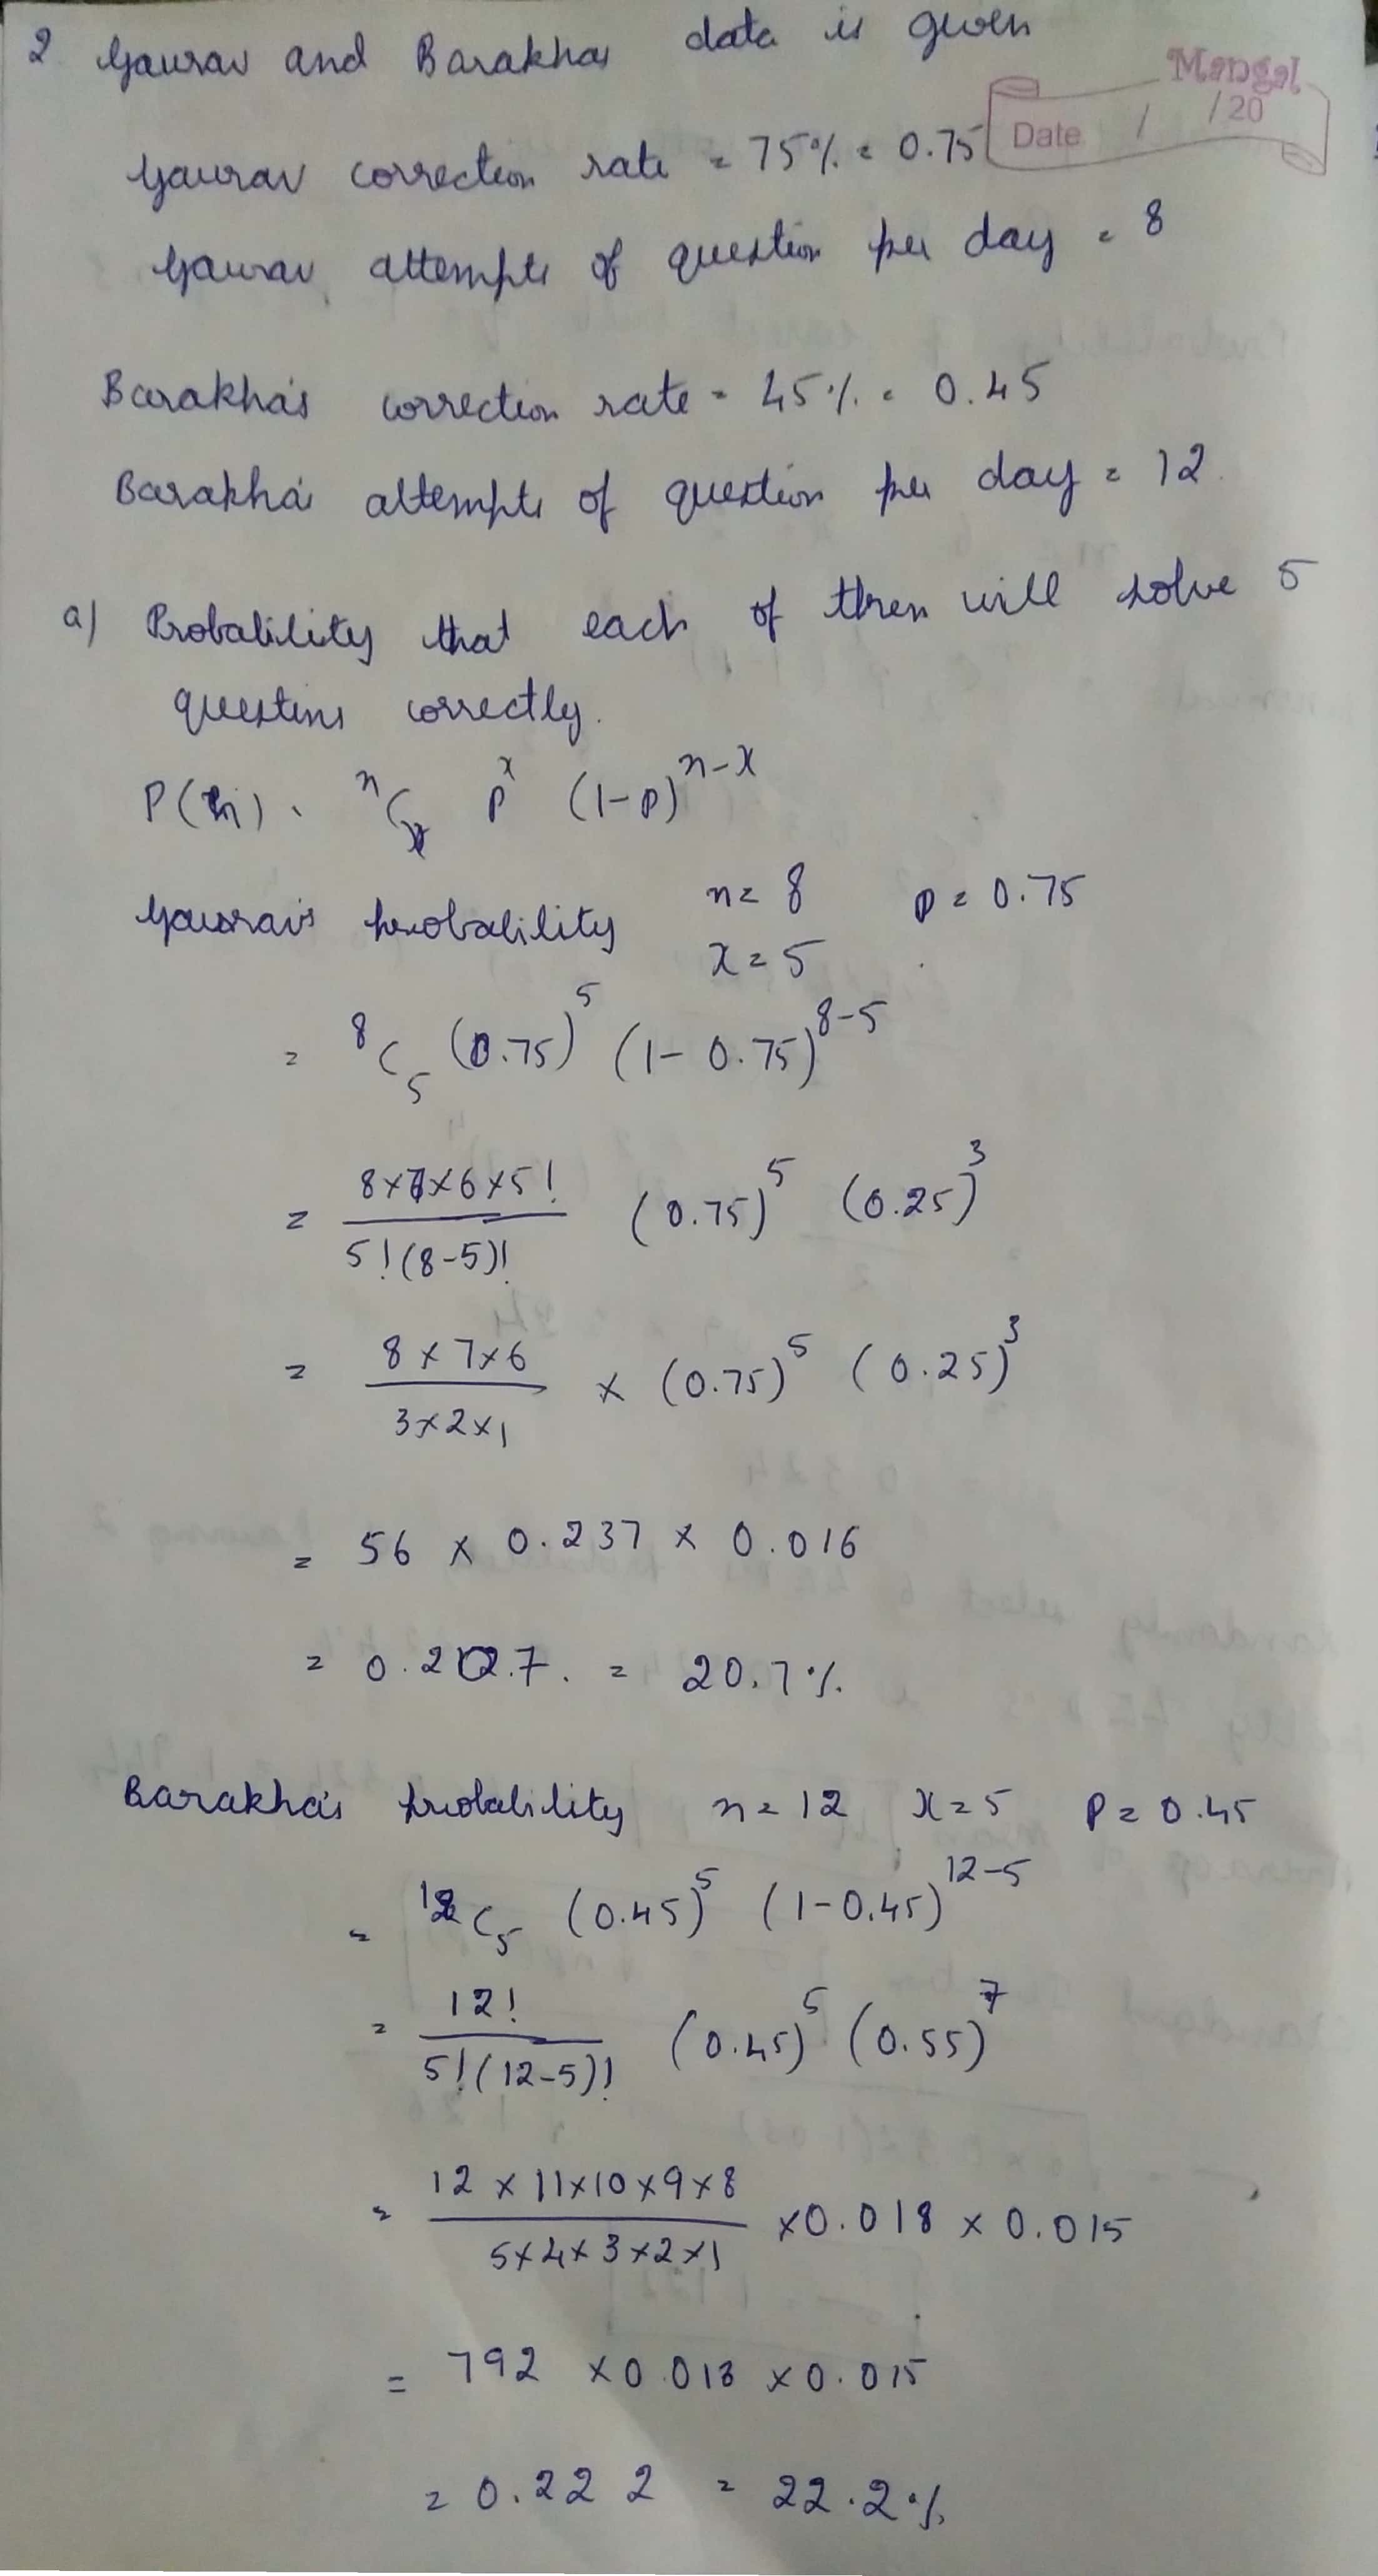 2 Gaurav and Barakha data is given
Mangal
Date / /20
Gaurav correction rate = 75% = 0.75
Gaurav attempts of question per day = 8
Barakha's correction rate = 45% = 0.45
Barakha's attempts of question per day = 12
a) Probability that each of them will solve 5
questins correctly.
P(x) = ⁿCₓ pˣ (1-p)ⁿ⁻ˣ
Gaurav's probability n = 8 p = 0.75
x = 5
= ⁸C₅ (0.75)⁵ (1 - 0.75)⁸⁻⁵
= 8×7×6×5! / 5!(8-5)! (0.75)⁵ (0.25)³
= 8 × 7 × 6 / 3×2×1 × (0.75)⁵ (0.25)³
= 56 × 0.237 × 0.016
= 0.207. = 20.7%
Barakha's probability n = 12 x = 5 p = 0.45
= ¹²C₅ (0.45)⁵ (1-0.45)¹²⁻⁵
= 12! / 5!(12-5)! (0.45)⁵ (0.55)⁷
= 12 × 11×10×9×8 / 5×4×3×2×1 × 0.018 × 0.015
= 792 × 0.018 × 0.015
= 0.222 = 22.2%